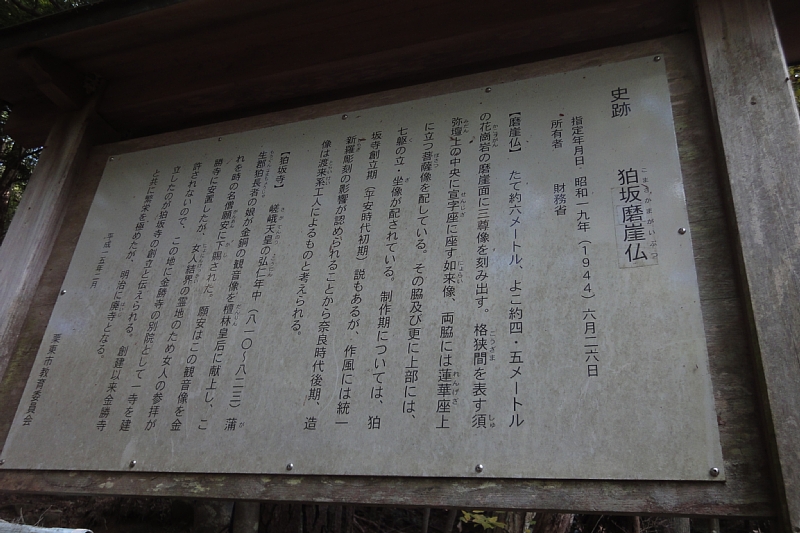 史跡
狛坂磨崖仏
こまさかまがいぶつ
指定年月日 昭和一九年（1944）六月二六日
所有者 財務省
【磨崖仏】 たて約六メートル、よこ約四・五メートル
の花崗岩の磨崖面に三尊像を刻み出す。格狭間を表す須
弥壇上の中央に宣字座に座す如来像、両脇には蓮華座上
に立つ菩薩像を配している。その脇及び更に上部には、
七躯の立・坐像が配されている。制作期については、狛
坂寺創立期（平安時代初期）説もあるが、作風には統一
新羅彫刻の影響が認められることから奈良時代後期、造
像は渡来系工人によるものと考えられる。
【狛坂寺】 嵯峨天皇の弘仁年中（八一〇～八二三）蒲
生郡狛長者の娘が金銅の観音像を檀林皇后に献上し、こ
れを時の名僧願安に下賜された。願安はこの観音像を金
勝寺に安置したが、女人結界の霊地のため女人の参拝が
許されないので、この地に金勝寺の別院として一寺を建
立したのが狛坂寺の創立と伝えられる。創建以来金勝寺
と共に繁栄を極めたが、明治に廃寺となる。
平成一五年二月
栗東市教育委員会